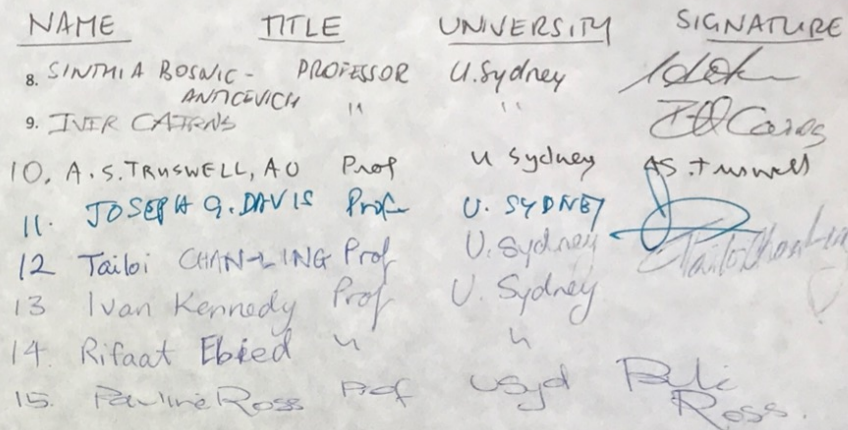 NAME TITLE UNIVERSITY SIGNATURE
8. SINTHIA BOSNIC- PROFESSOR U.Sydney
ANTICEVICH
9. IVER CAIRNS " "
10. A.S.TRUSWELL, AO Prof U Sydney AS.Truswell
11. JOSEPH G. DAVIS Prof U. SYDNEY
12 Tailoi CHAN-LING Prof U. Sydney Tailoi Chan Ling
13 Ivan Kennedy Prof U. Sydney
14. Rifaat Ebied " "
15. Pauline Ross Prof USyd
Ross.